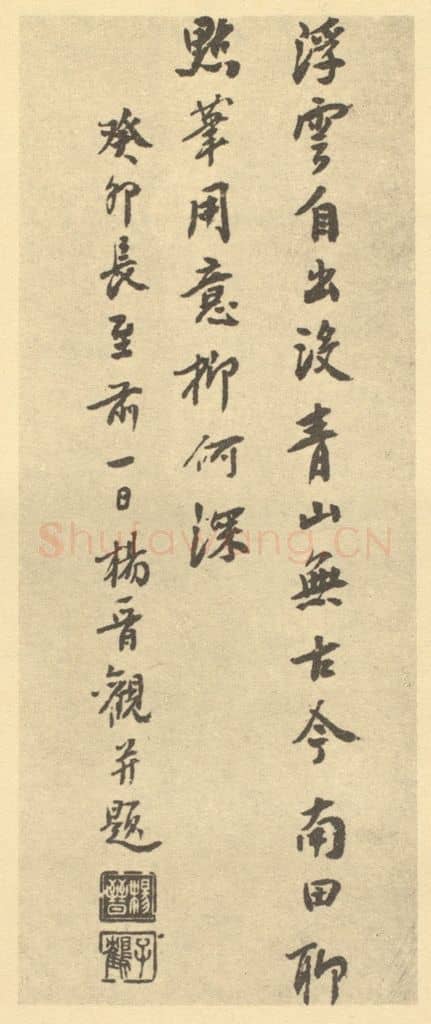 浮雲自出没青山無古今南田聊
點筆用意抑何深
癸卯長至前一日楊晋觀并題
楊晉
子鶴
Shufawang.CN